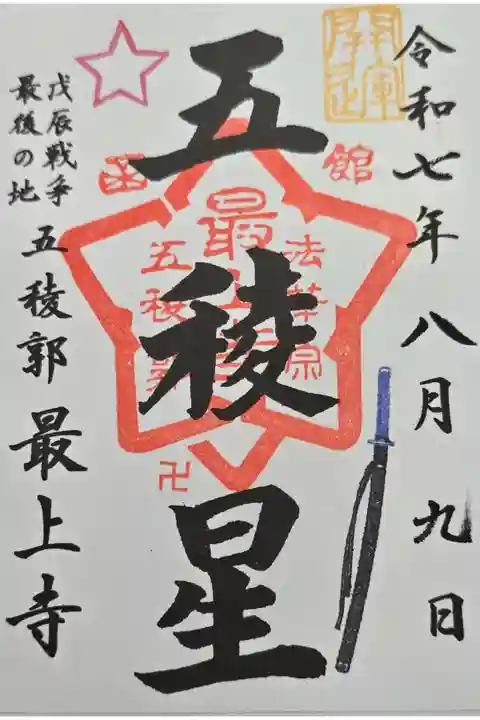 令和七年八月九日
五稜星
函館
法華宗
最上寺
五稜郭
卍
戊辰戦争
最後の地
五稜郭 最上寺